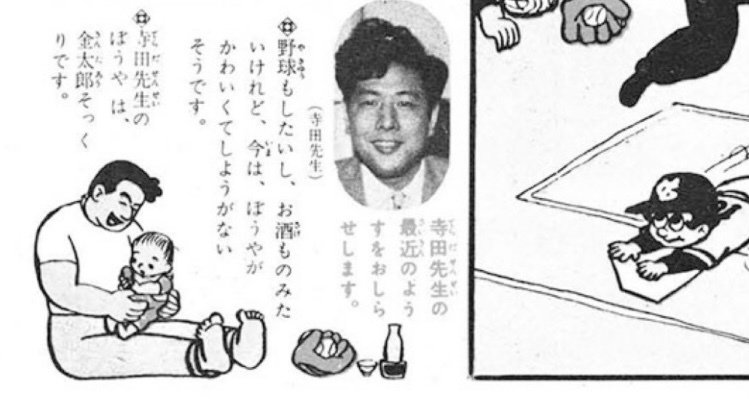 寺田先生の
最近のよう
すをおしら
せします。
(寺田先生)
野球もしたいし、お酒ものみた
いけれど、今は、ぼうやが
かわいくてしようがない
そうです。
寺田先生の
ぼうやは、
金太郎そっく
りです。